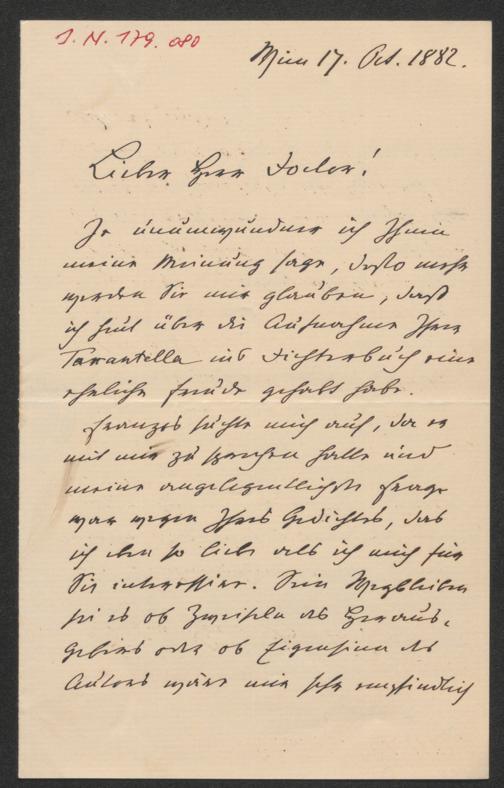 J. N. 179.080
Wien 17. Oct. 1882.
Lieber Herr Doctor!
Je unumwundner ich Ihnen
meine Meinung sage, desto mehr
werden Sie mir glauben, daß
ich heut über die Aufnahme Ihrer
Tarantella ins Dichterbuch eine
ehrliche Freude gehabt habe.
Franzos suchte mich auf, da er
mit mir zu sprechen hatte und
meine angelegentlichste Frage
war wegen Ihres Gedichtes, das
ich eben so liebe als ich mich für
Sie interessire. Sein Wegbleiben
sei es ob Zweifeln des Heraus-
gebers oder ob Eigensinn des
Autors wäre mir sehr empfindlich